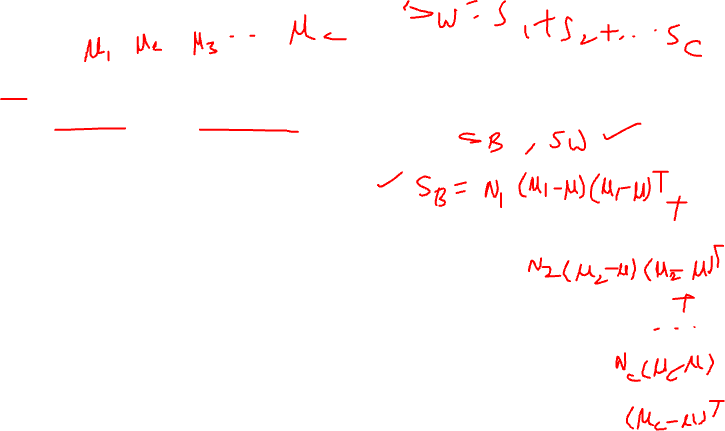 μ₁ μ₂ μ₃ ·· μ_c
S_W = S₁ + S₂ + ... S_C
S_B , S_W ✓
✓ S_B = N₁ (μ₁-μ)(μ₁-μ)ᵀ +
N₂(μ₂-μ)(μ₂-μ)ᵀ
+
...
N_c(μ_c-μ)
(μ_c-μ)ᵀ